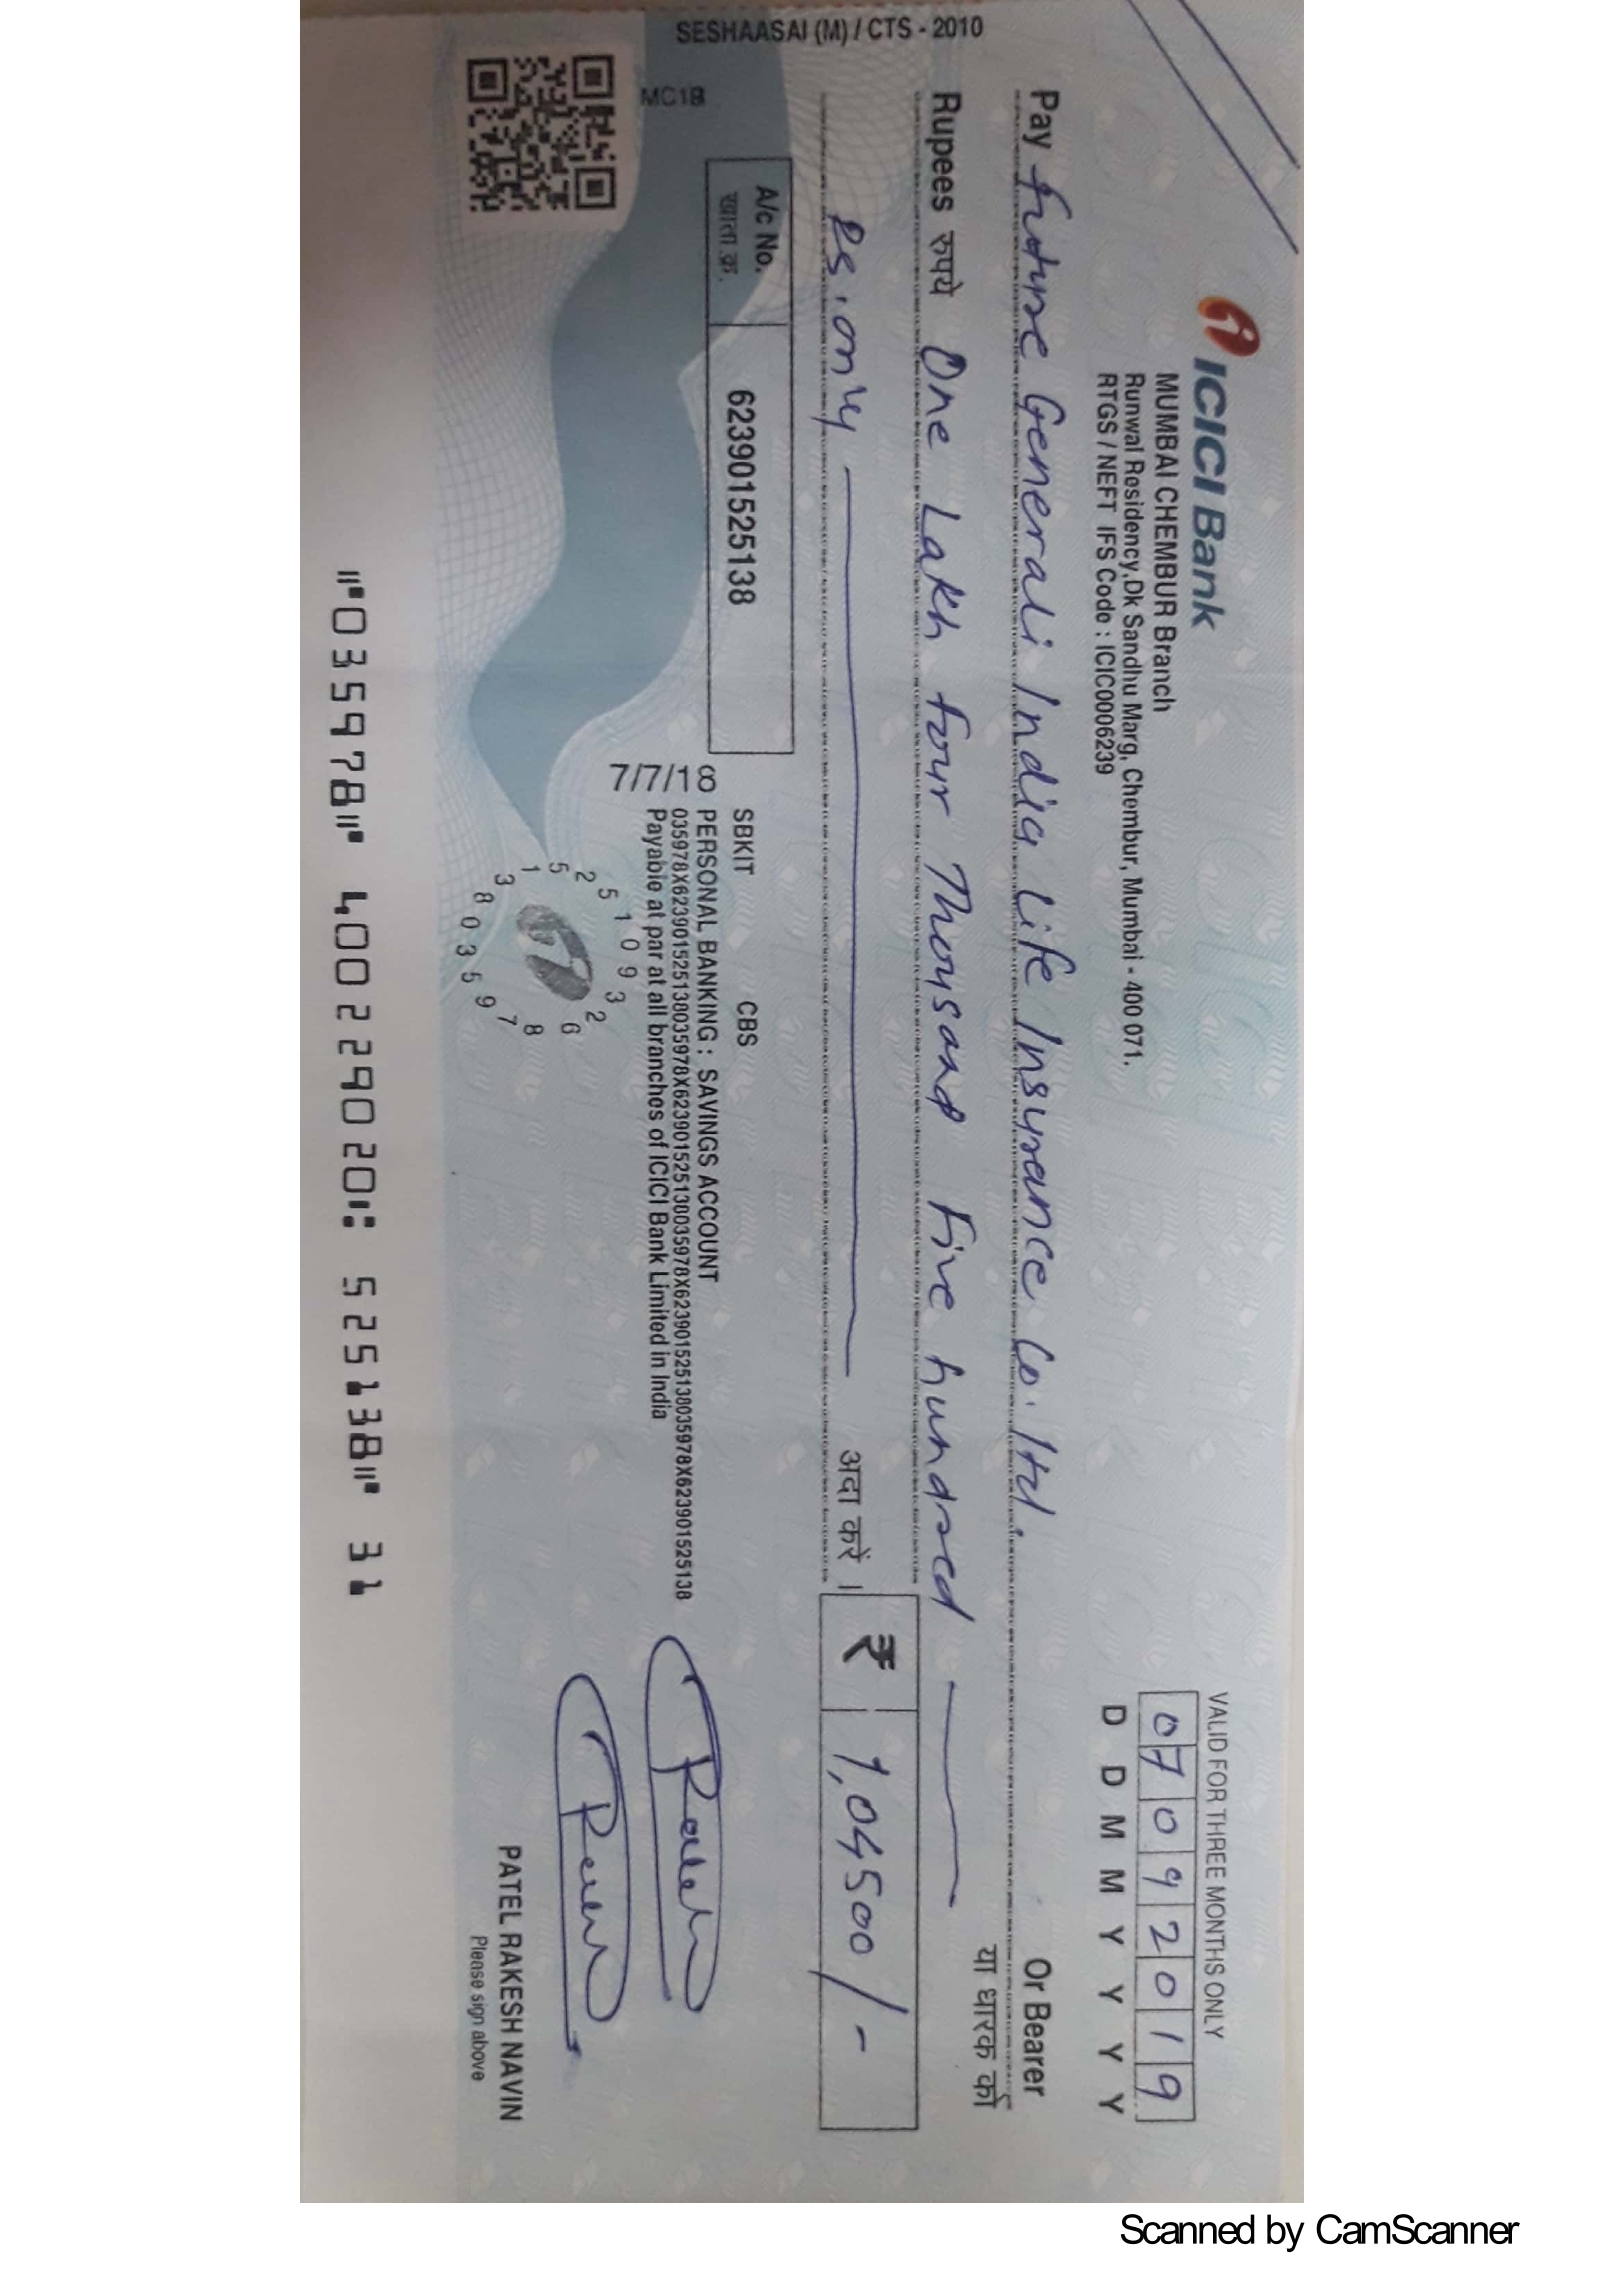 SESHAASAI (M) / CTS - 2010
ICICI Bank
MUMBAI CHEMBUR Branch
Runwal Residency,Dk Sandhu Marg, Chembur, Mumbai - 400 071.
RTGS / NEFT IFS Code : ICIC0006239
VALID FOR THREE MONTHS ONLY
07092019
D D M M Y Y Y Y
Pay Future Generali India Life Insurance Co. Ltd. Or Bearer
या धारक को
Rupees रुपये One Lakh four Thousand five hundred
Rs. only अदा करें ।
₹ 1,04500/-
A/c No.
खाता क्र.
623901525138
MC1B
7/7/18
SBKIT CBS
PERSONAL BANKING : SAVINGS ACCOUNT
035978X623901525138035978X623901525138035978X623901525138035978X623901525138
Payable at par at all branches of ICICI Bank Limited in India
1 5 2 5 1 0 9 3 2 6 8 7 9 5 3 0 8 3
PATEL RAKESH NAVIN
Please sign above
⑈035978⑈ 400229020⑆ 525138⑈ 31
Scanned by CamScanner